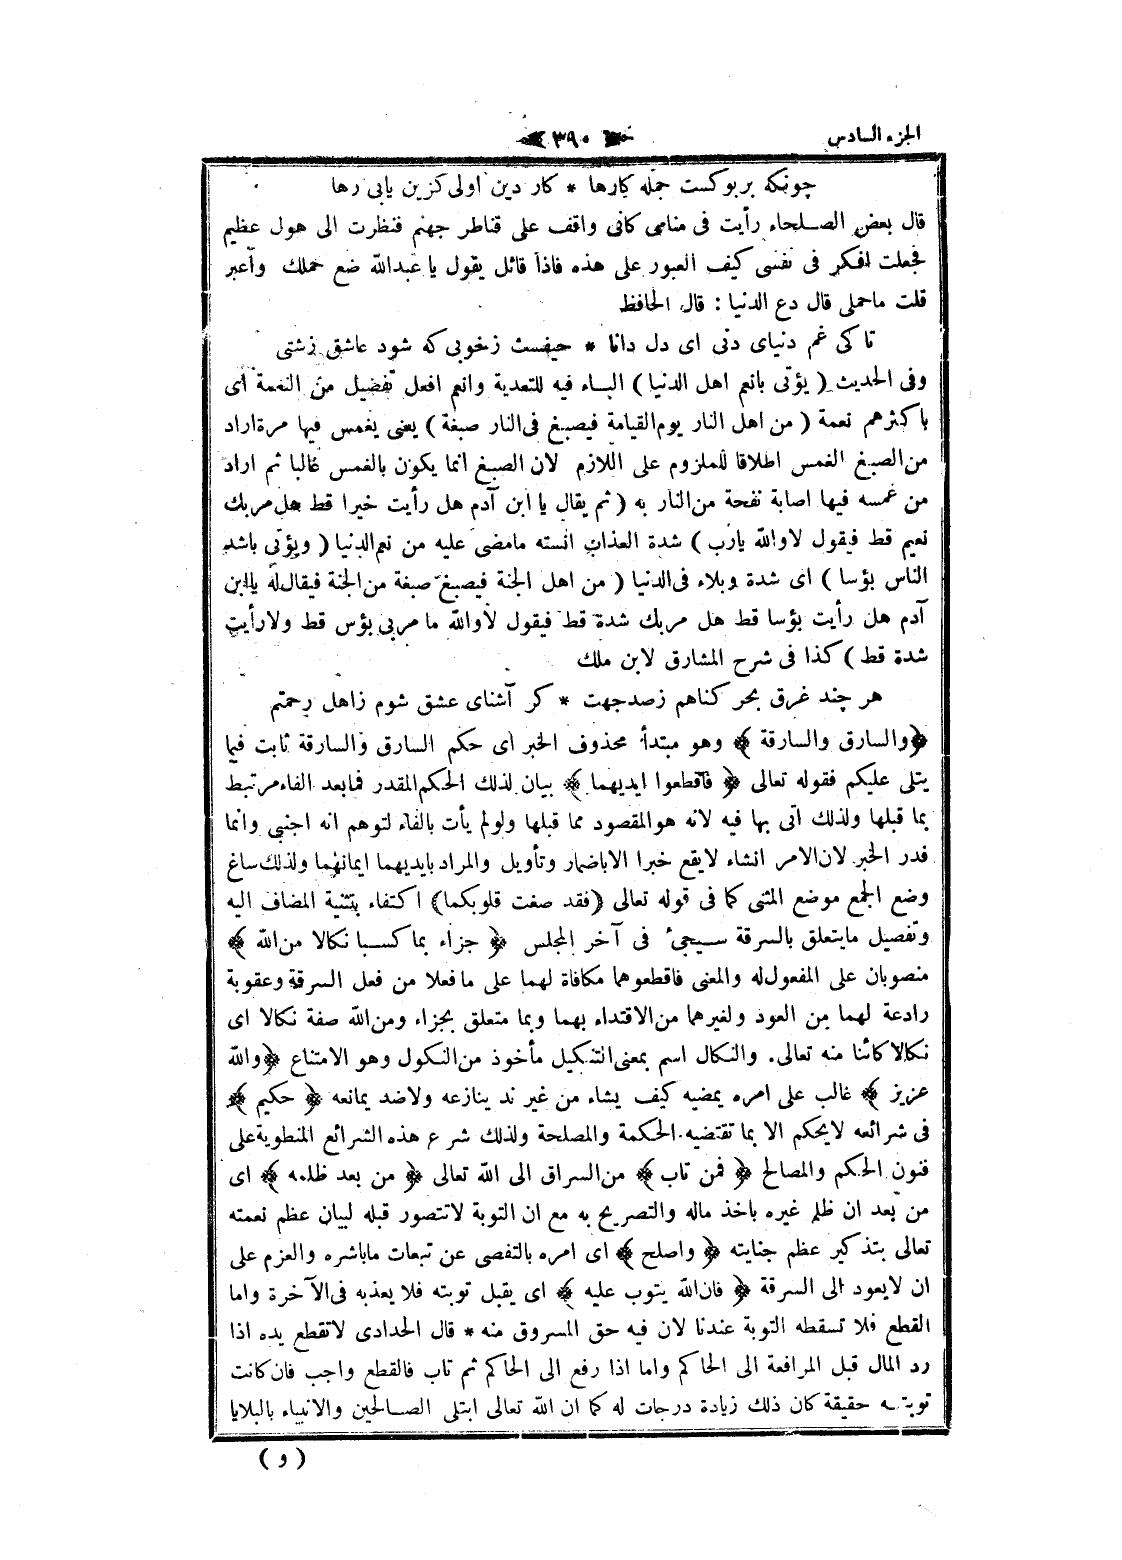 الجزء السادس
٣٩٠
چونکه بر بوکست جمله کارها * کار دین اولی کزین یابی رها
قال بعض الصلحاء رأيت فى منامى كانى واقف على قناطر جهنم فنظرت الى هول عظيم
فجعلت افكر فى نفسى كيف العبور على هذه فاذا قائل يقول يا عبدالله ضع حملك وأعبر
قلت ماحملى قال دع الدنيا : قال الحافظ
تا کی غم دنیای دنی ای دل دانا * حیفست زخوبی که شود عاشق زشتی
وفى الحديث ( يؤتى بانعم اهل الدنيا ) الباء فيه للتعدية وانعم افعل تفضيل من النعمة اى
باكثرهم نعمة ( من اهل النار يوم القيامة فيصبغ فى النار صبغة ) يعنى يغمس فيها مرة اراد
من الصبغ الغمس اطلاقا للملزوم على اللازم لان الصبغ انما يكون بالغمس غالبا ثم اراد
من غمسه فيها اصابة نفحة من النار به ( ثم يقال يا ابن آدم هل رأيت خيرا قط هل مر بك
نعيم قط فيقول لاوالله يارب ) شدة العذاب انسته مامضى عليه من نعم الدنيا ( ويؤتى باشد
الناس بؤسا ) اى شدة وبلاء فى الدنيا ( من اهل الجنة فيصبغ صبغة من الجنة فيقال له ياابن
آدم هل رأيت بؤسا قط هل مر بك شدة قط فيقول لاوالله ما مر بى بؤس قط ولا رأيت
شدة قط ) كذا فى شرح المشارق لابن ملك
هر چند غرق بحر کناهم زصد جهت * کر آشنای عشق شوم زاهل رحمتم
﴿والسارق والسارقة ﴾ وهو مبتدأ محذوف الخبر اى حكم السارق والسارقة ثابت فيما
يتلى عليكم فقوله تعالى ﴿ فاقطعوا ايديهما ﴾ بيان لذلك الحكم المقدر فمابعد الفاء مرتبط
بما قبلها ولذلك اتى بها فيه لانه هوالمقصود مما قبلها ولولم يأت بالفاء لتوهم انه اجنبى وانما
قدر الخبر لان الامر انشاء لايقع خبرا الاباضمار وتأويل والمراد بايديهما ايمانهما ولذلك ساغ
وضع الجمع موضع المثنى كما فى قوله تعالى ﴿فقد صغت قلوبكما﴾ اكتفاء بتثنية المضاف اليه
وتفصيل مايتعلق بالسرقة سيجىء فى آخر المجلس ﴿ جزاء بما كسبا نكالا من الله ﴾
منصوبان على المفعول له والمعنى فاقطعوهما مكافاة لهما على مافعلا من فعل السرقة وعقوبة
رادعة لهما من العود ولغيرهما من الاقتداء بهما وبما متعلق بجزاء ومن الله صفة نكالا اى
نكالا كائنا منه تعالى. والنكال اسم بمعنى التنكيل مأخوذ من النكول وهو الامتناع ﴿والله
عزيز ﴾ غالب على امره يمضيه كيف يشاء من غير ند ينازعه ولاضد يمانعه ﴿ حكيم ﴾
فى شرائعه لايحكم الا بما تقتضيه الحكمة والمصلحة ولذلك شرع هذه الشرائع المنطوية على
فنون الحكم والمصالح ﴿ فمن تاب ﴾ من السراق الى الله تعالى ﴿ من بعد ظلمه ﴾ اى
من بعد ان ظلم غيره باخذ ماله والتصريح به مع ان التوبة لاتتصور قبله لبيان عظم نعمته
تعالى بتذكير عظم جنايته ﴿ واصلح ﴾ اى امره بالتفصى عن تبعات ماباشره والعزم على
ان لايعود الى السرقة ﴿ فان الله يتوب عليه ﴾ اى يقبل توبته فلا يعذبه فى الآخرة واما
القطع فلا تسقطه التوبة عندنا لان فيه حق المسروق منه * قال الحدادى لاتقطع يده اذا
رد المال قبل المرافعة الى الحاكم واما اذا رفع الى الحاكم ثم تاب فالقطع واجب فان كانت
توبته حقيقة كان ذلك زيادة درجات له كما ان الله تعالى ابتلى الصالحين والانبياء بالبلايا
( و )